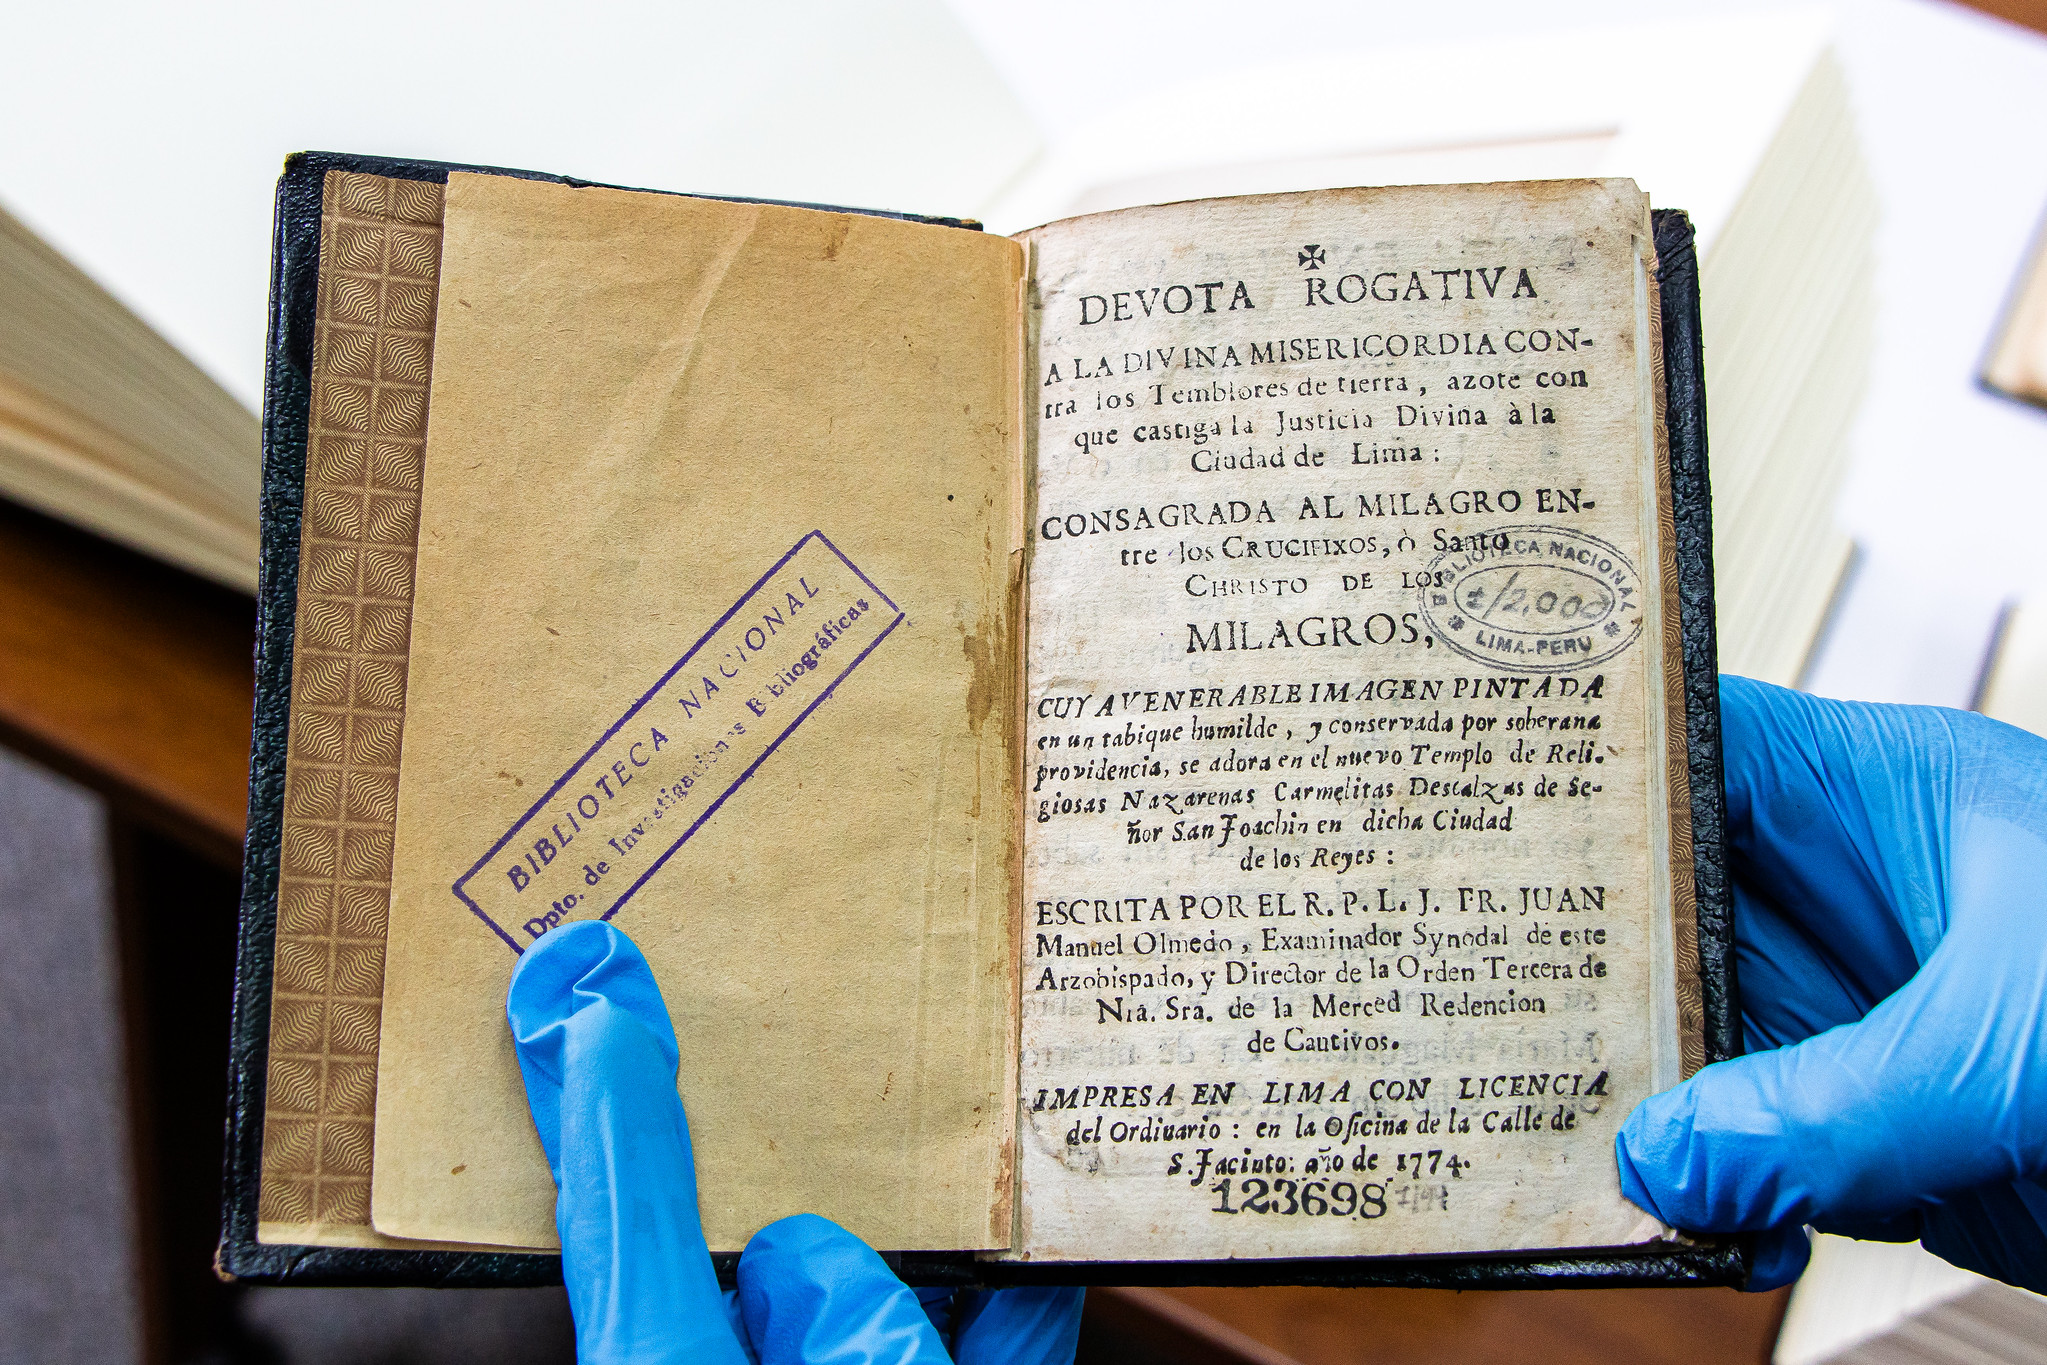 BIBLIOTECA NACIONAL
Dpto. de Investigaciones Bibliográficas
DEVOTA ROGATIVA
A LA DIVINA MISERICORDIA CON-
tra los Temblores de tierra, azote con
que castiga la Justicia Divina à la
Ciudad de Lima:
CONSAGRADA AL MILAGRO EN-
tre los CRUCIFIXOS, ò Santo
CHRISTO DE LOS
MILAGROS,
BIBLIOTECA NACIONAL
LIMA-PERU
CUYA VENERABLE IMAGEN PINTADA
en un tabique humilde, y conservada por soberana
providencia, se adora en el nuevo Templo de Reli-
giosas Nazarenas Carmelitas Descalzas de Se-
ñor San Joachin en dicha Ciudad
de los Reyes:
ESCRITA POR EL R. P. L. J. FR. JUAN
Manuel Olmedo, Examinador Synodal de este
Arzobispado, y Director de la Orden Tercera de
Nrã. Sra. de la Merced Redencion
de Cautivos.
IMPRESA EN LIMA CON LICENCIA
del Ordinario: en la Oficina de la Calle de
S. Jacinto: año de 1774.
123698